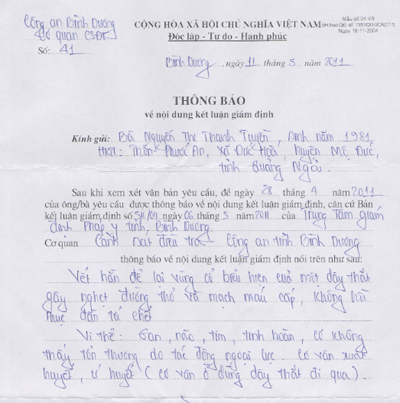 Công an Bình Dương
Cơ quan CSĐT
Số: 41
CỘNG HÒA XÃ HỘI CHỦ NGHĨA VIỆT NAM
Độc lập - Tự do - Hạnh phúc
Mẫu số 04 V9
Ngày 18-11-2004
Bình Dương, ngày 11 tháng 5 năm 2011
THÔNG BÁO
về nội dung kết luận giám định
Kính gửi: Bà Nguyễn Thị Thanh Tuyền, sinh năm 1981,
HKTT: Thôn Phước An, xã Đức Hòa, huyện Mộ Đức,
tỉnh Quảng Ngãi.
Sau khi xem xét văn bản yêu cầu, đề ngày 28 tháng 4 năm 2011
của ông/bà yêu cầu được thông báo về nội dung kết luận giám định, căn cứ Bản
kết luận giám định số ngày 06 tháng 5 năm 2011 của Trung tâm giám
định Pháp y tỉnh Bình Dương.
Cơ quan Cảnh sát điều tra Công an tỉnh Bình Dương
thông báo về nội dung kết luận giám định nói trên như sau:
Vết hằn để lại vùng cổ biểu hiện của một dây thắt
gây nghẹt đường thở và mạch máu cấp, không hồi
phục dẫn tới chết
Vi thể: Gan, não, tim, tinh hoàn, cơ không
thấy tổn thương do tác động ngoại lực. Cơ vân xuất
huyết, ứ huyết (cơ vân ở vùng dây thắt đi qua).